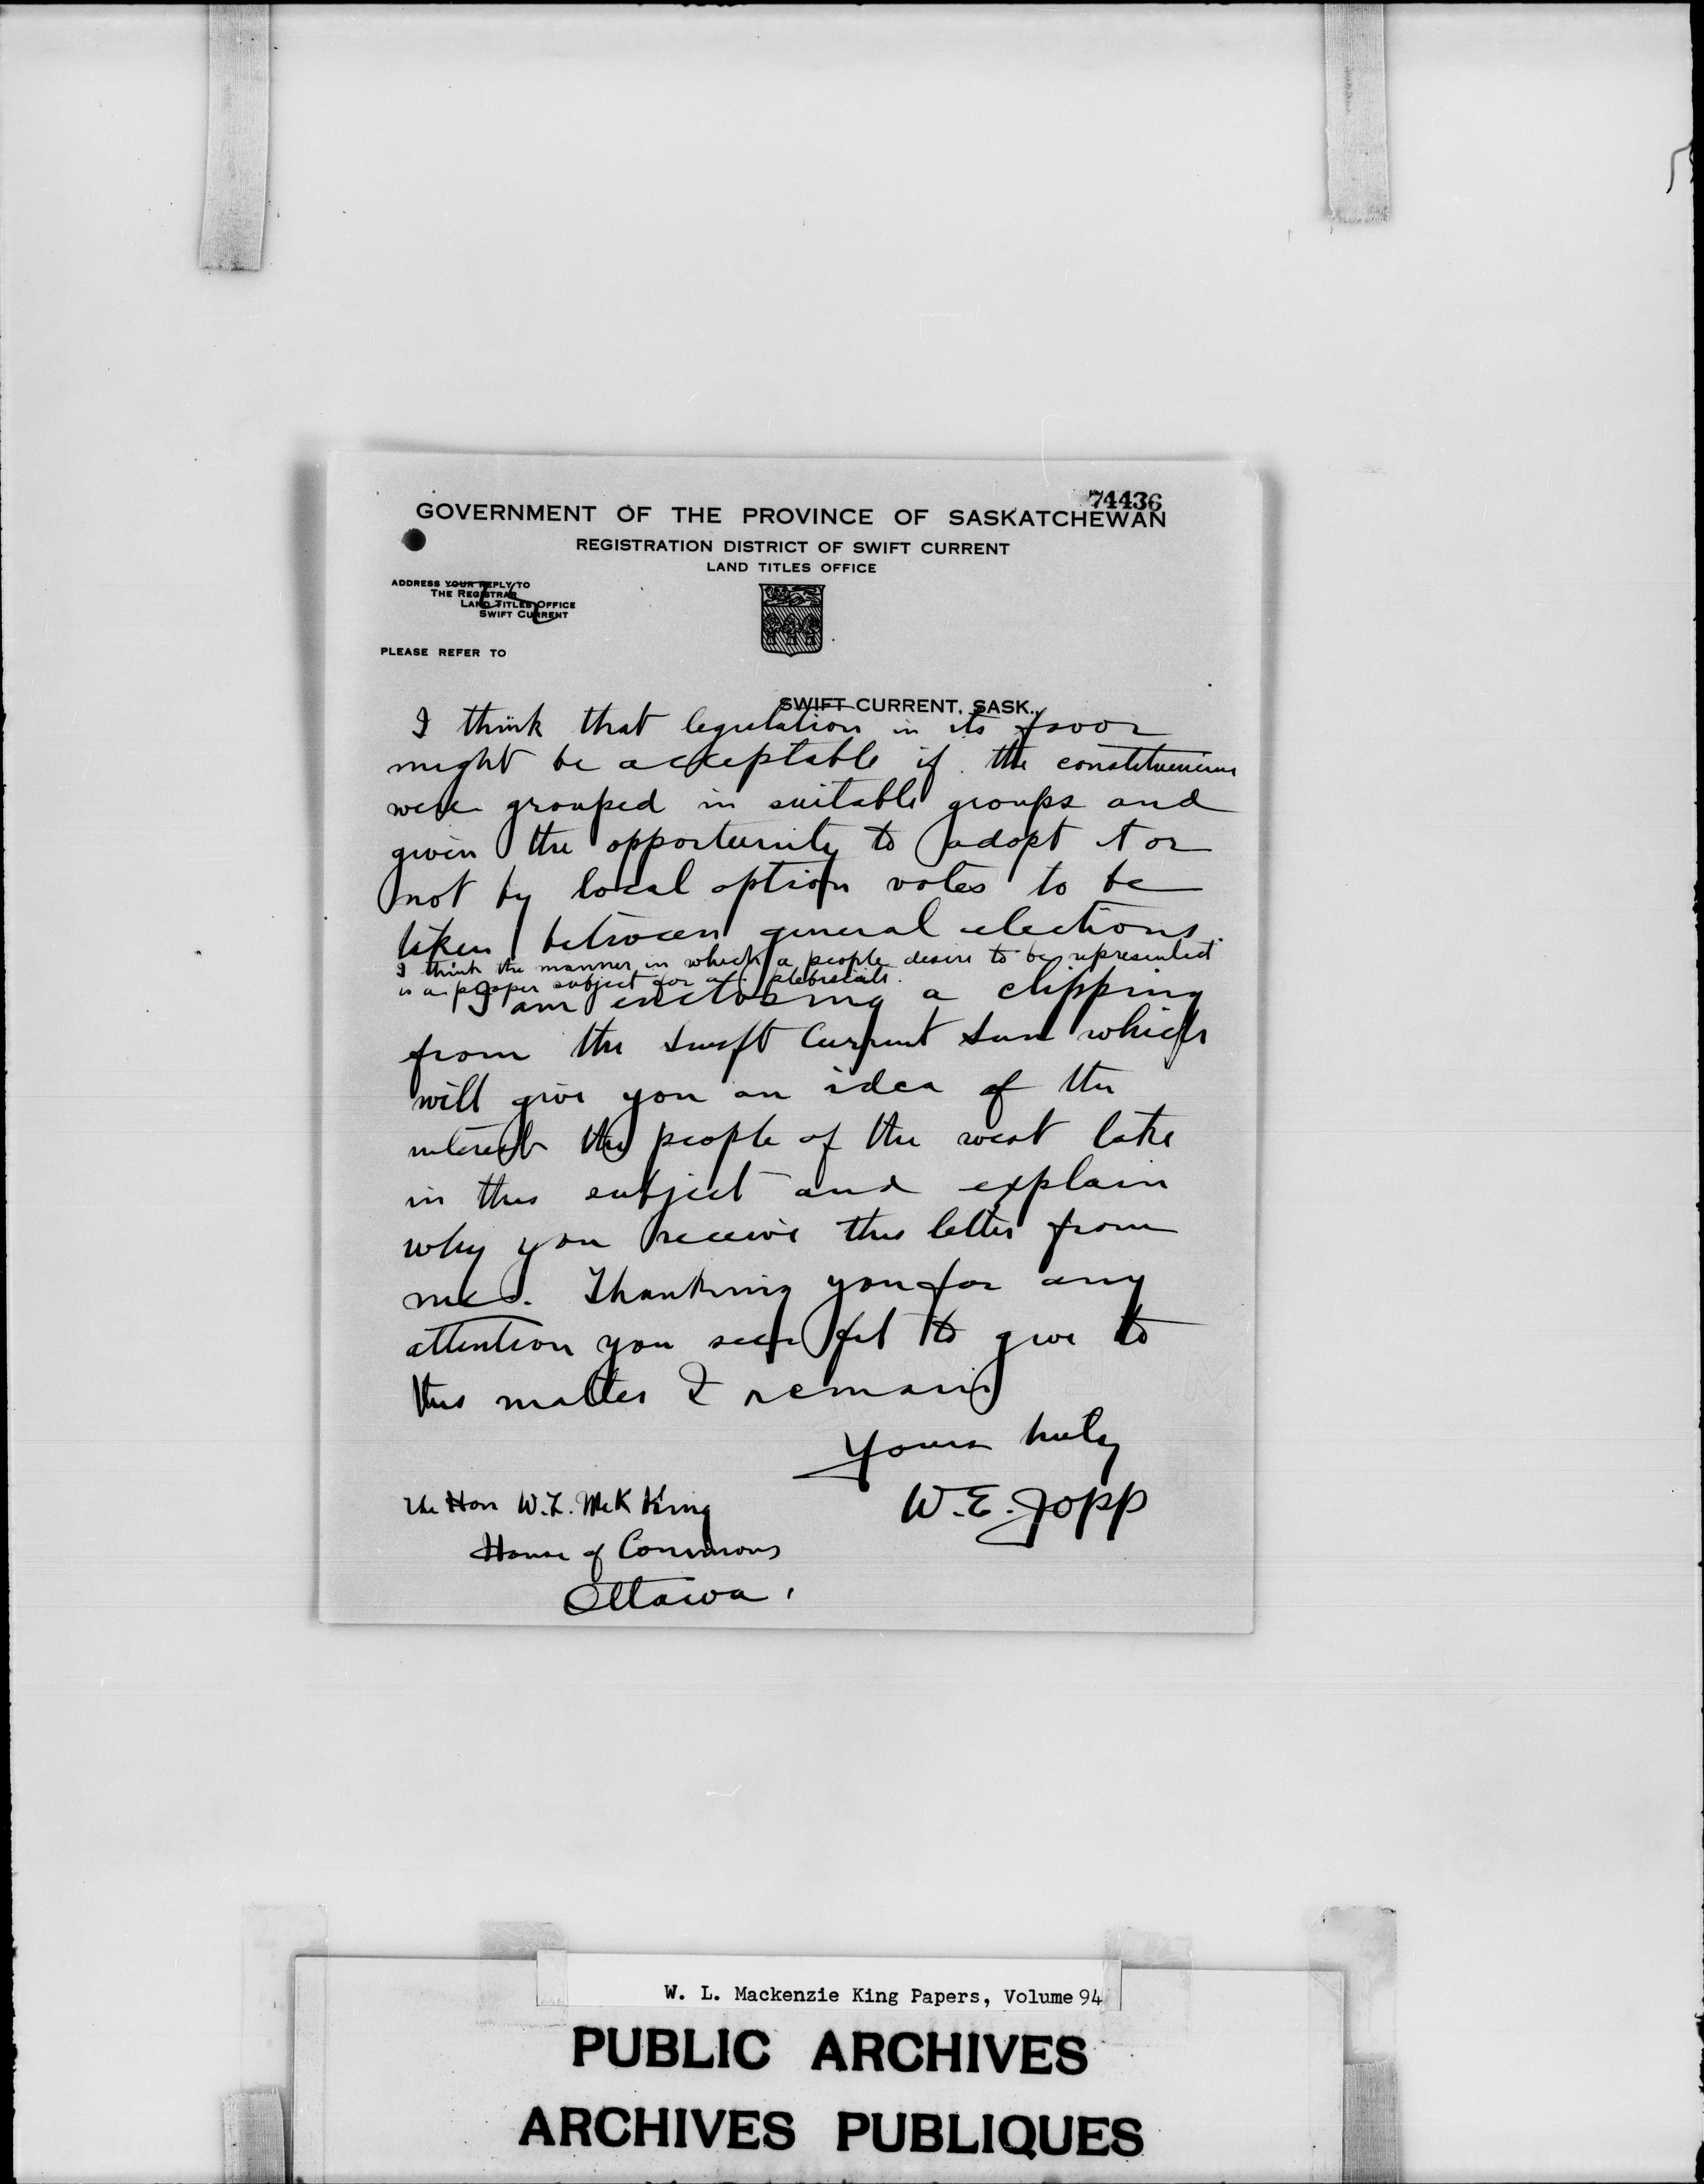 74436
GOVERNMENT OF THE PROVINCE OF SASKATCHEWAN
REGISTRATION DISTRICT OF SWIFT CURRENT
LAND TITLES OFFICE
ADDRESS YOUR REPLY TO
THE REGISTRAR
LAND TITLES OFFICE
SWIFT CURRENT
PLEASE REFER TO
SWIFT CURRENT, SASK.,
I think that legislation in its favor
might be acceptable if the constituencies
were grouped in suitable groups and
given the opportunity to adopt it or
not by local option votes to be
taken between general elections.
I think the manner in which a people desire to be represented
is a proper subject for a plebiscite.
I am enclosing a clipping
from the Swift Current Sun which
will give you an idea of the
interest the people of the west take
in this subject and explain
why you receive this letter from
me. Thanking you for any
attention you see fit to give to
this matter I remain
Yours truly
W. E. Jopp
The Hon W. L. McK King
House of Commons
Ottawa.
W. L. Mackenzie King Papers, Volume 94
PUBLIC ARCHIVES
ARCHIVES PUBLIQUES